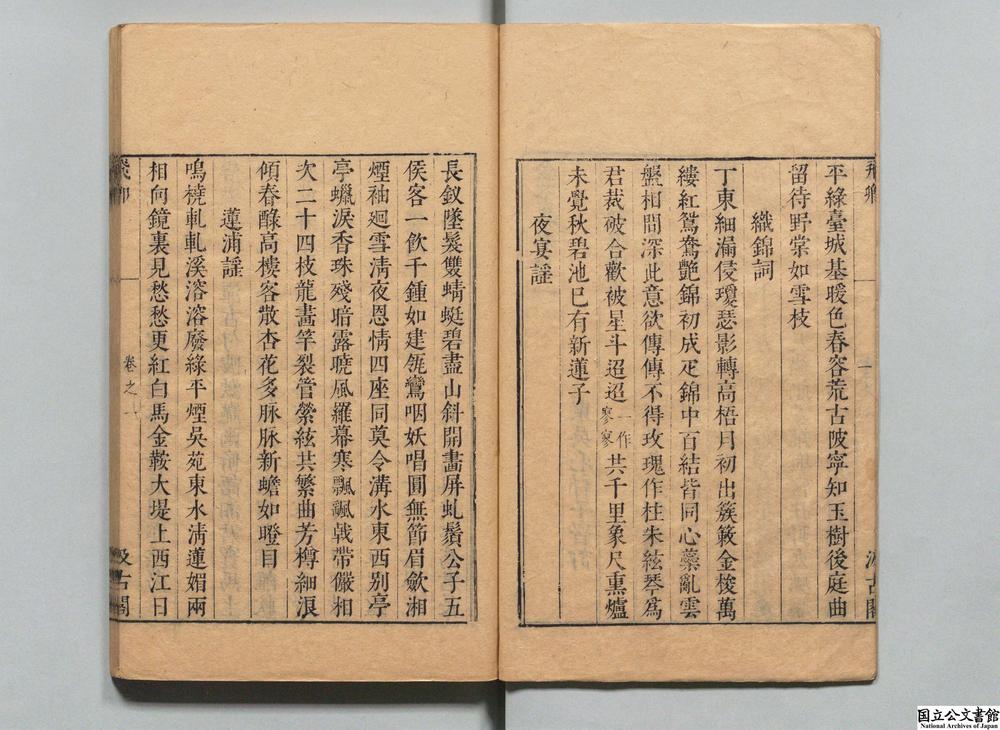 飛卿
一
汲古閣
平綠臺城基暖色春容荒古陂寧知玉樹後庭曲
留待野棠如雪枝
織錦詞
丁東細漏侵瓊瑟影轉高梧月初出簇簌金梭萬
縷紅鴛鴦艷錦初成疋錦中百結皆同心蘂亂雲
盤相間深此意欲傳傳不得玫瑰作柱朱絃琴爲
君裁破合歡被星斗迢迢一作寥寥共千里象尺熏爐
未覺秋碧池巳有新蓮子
夜宴謠
長釵墜髮雙蜻蜓碧盡山斜開畫屏虬鬚公子五
侯客一飲千鍾如建瓴鸞咽妖唱圓無節眉斂湘
煙袖廻雪清夜恩情四座同莫令溝水東西別亭
亭蠟淚香珠殘暗露曉風羅幕寒飄飄戟帶儼相
次二十四枝龍畫竿裂管縈絃共繁曲芳樽細浪
傾春醁高樓客散杏花多脉脉新蟾如瞪目
蓮浦謠
鳴橈軋軋溪溶溶廢綠平煙吳苑東水清蓮媚兩
相向鏡裏見愁愁更紅白馬金鞍大堤上西江日
飛卿
卷之一
汲古閣
国立公文書館
National Archives of Japan